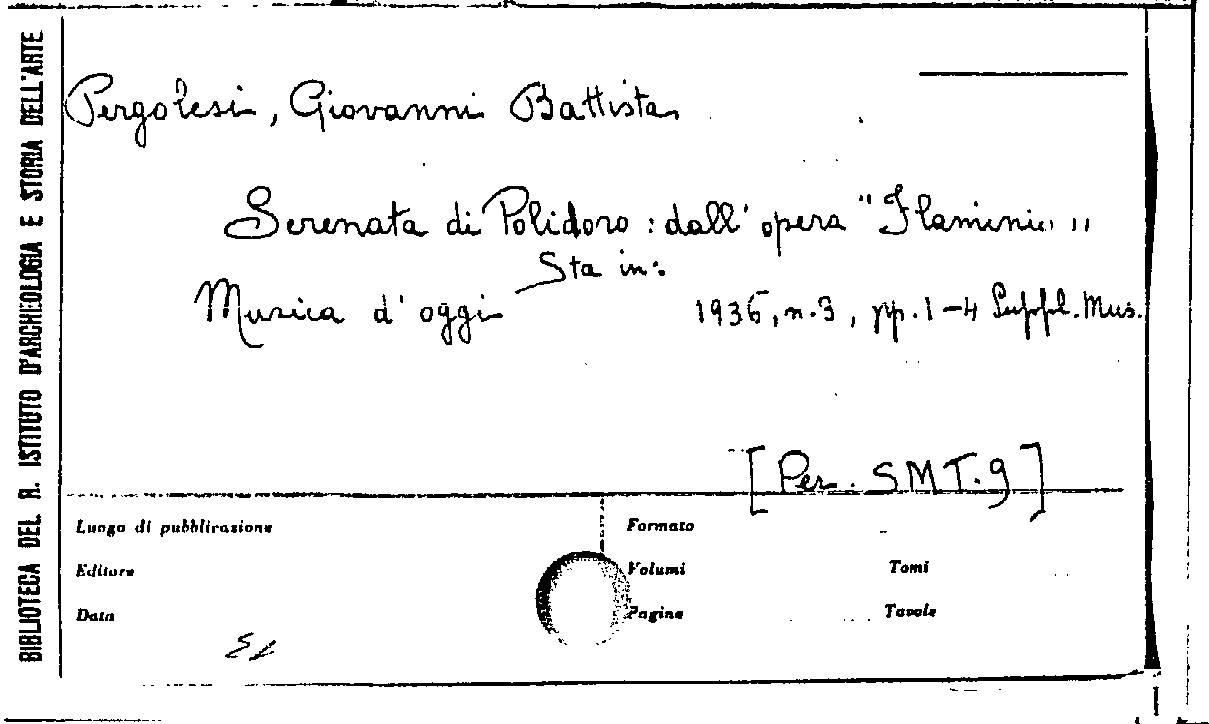 BIBLIOTECA DEL R. ISTITUTO D'ARCHEOLOGIA E STORIA DELL'ARTE
Pergolesi, Giovanni Battista
Serenata di Polidoro : dall' opera "Flaminio"
Sta in:
Musica d' oggi 1936, n.3, pp. 1-4 Suppl. Mus.
[Per. SMT.9]
Luogo di pubblicazione Formato
Editore Volumi Tomi
Data Pagine Tavole